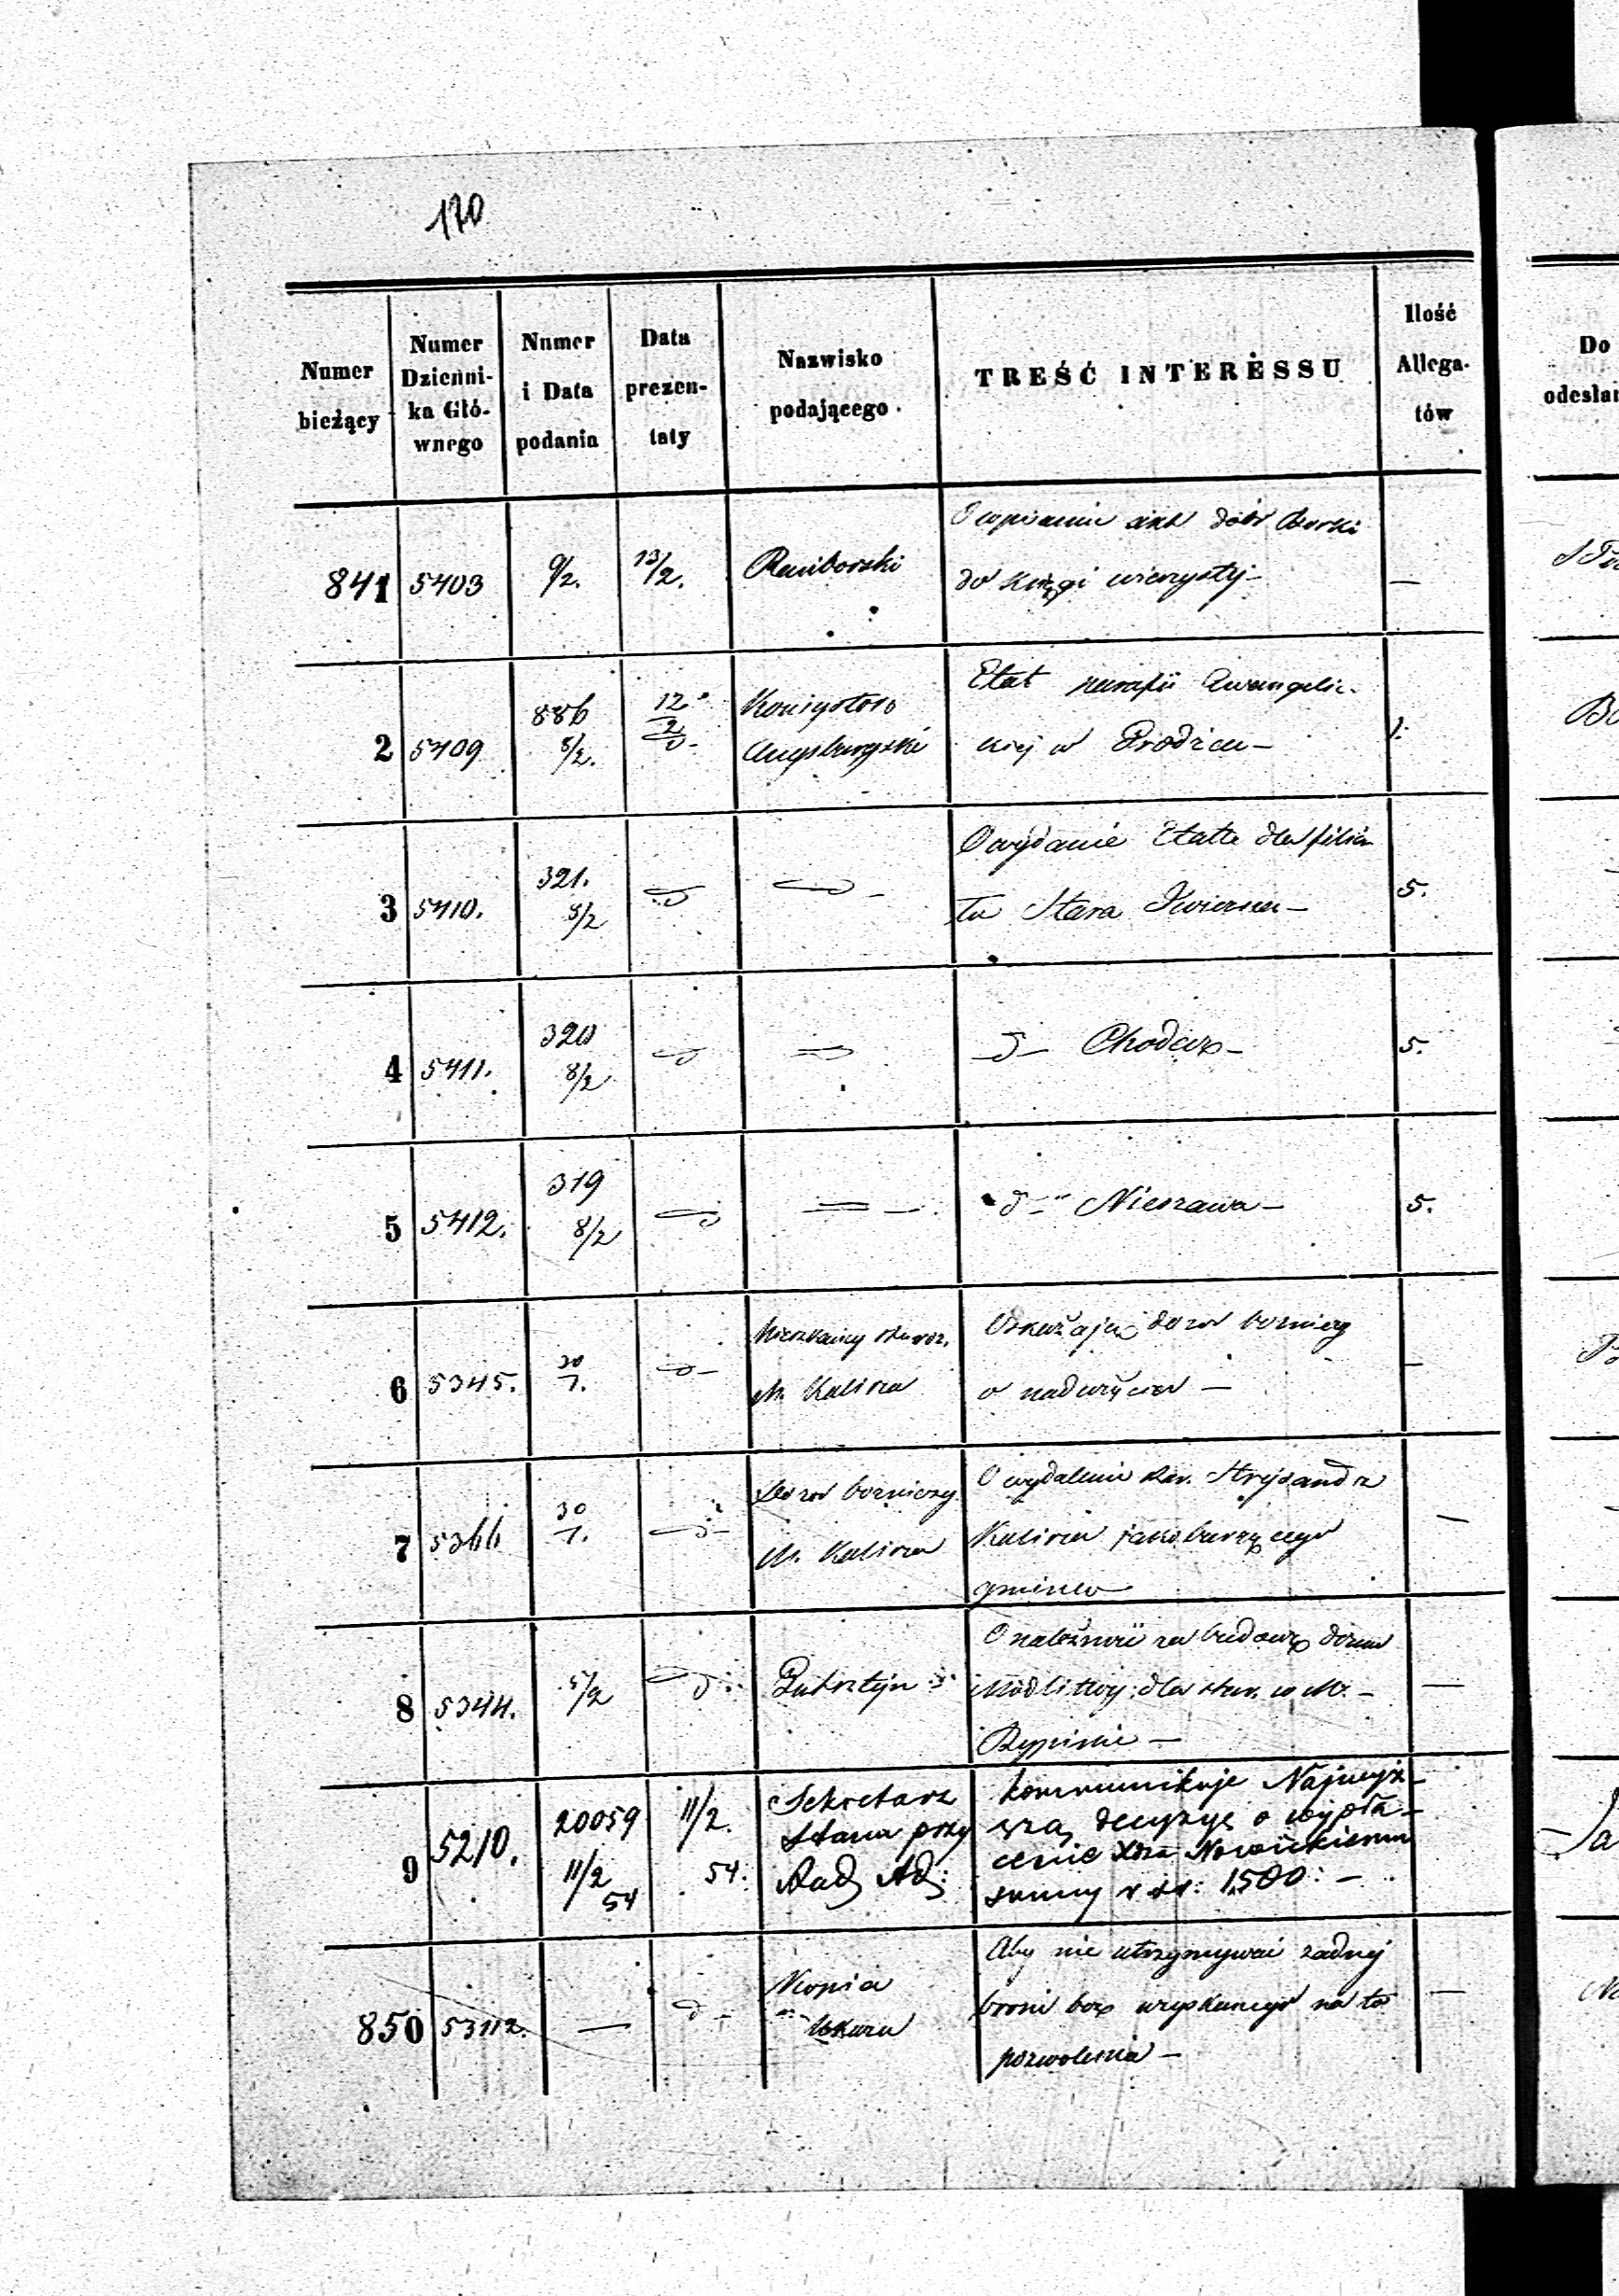 170
Numer bieżący
Numer Dzienni- ka Głó- wnego
Numer i Data podania
Data prezen- taty
Nazwisko podającego
TREŚĆ INTERESSU
Ilość Allega- tów
Do odesłan
841 5403 9/2. 13/2. Raciborski
O wpisanie akt dóbr
do księgi wieczystej — —
2 5409 886 8/2. 12/2 Konsystorz Augsburgski
Etat parafii Ewangelic-
kiej w 1.
3 5410. 321. 8/2
O wydanie Etatu dla filia-
łu Stara 5.
4 5411. 320 8/2
d— Chodecz— 5.
5 5412. 319 8/2
d— Nieszawa— 5.
6 5345. 30/1. d— Mieszkańcy staroz. M. Kalisza
Oskarżają dozór bożniczy
o nadużycia — —
7 5366 30/1. d— Dozór bożniczy M. Kalisza
O wydalenie star.
Kalisza jako burzącego
gminę — —
8 5344. 5/2 d
O należność za budowę domu
Modlitwy dla star. w M. —
Rypinie — —
9 5210. 20059 11/2 54 11/2. 54. Sekretarz Stanu przy Rad Ad:
kommunikuje Najwyż-
szą decyzyę o wypła-
cenie Xdza Nowickiemu
summy r sr: 1,500: —
850 — d — Kopia
Aby nie utrzymywać żadnej
broni bez uzyskanego na to
pozwolenia — —